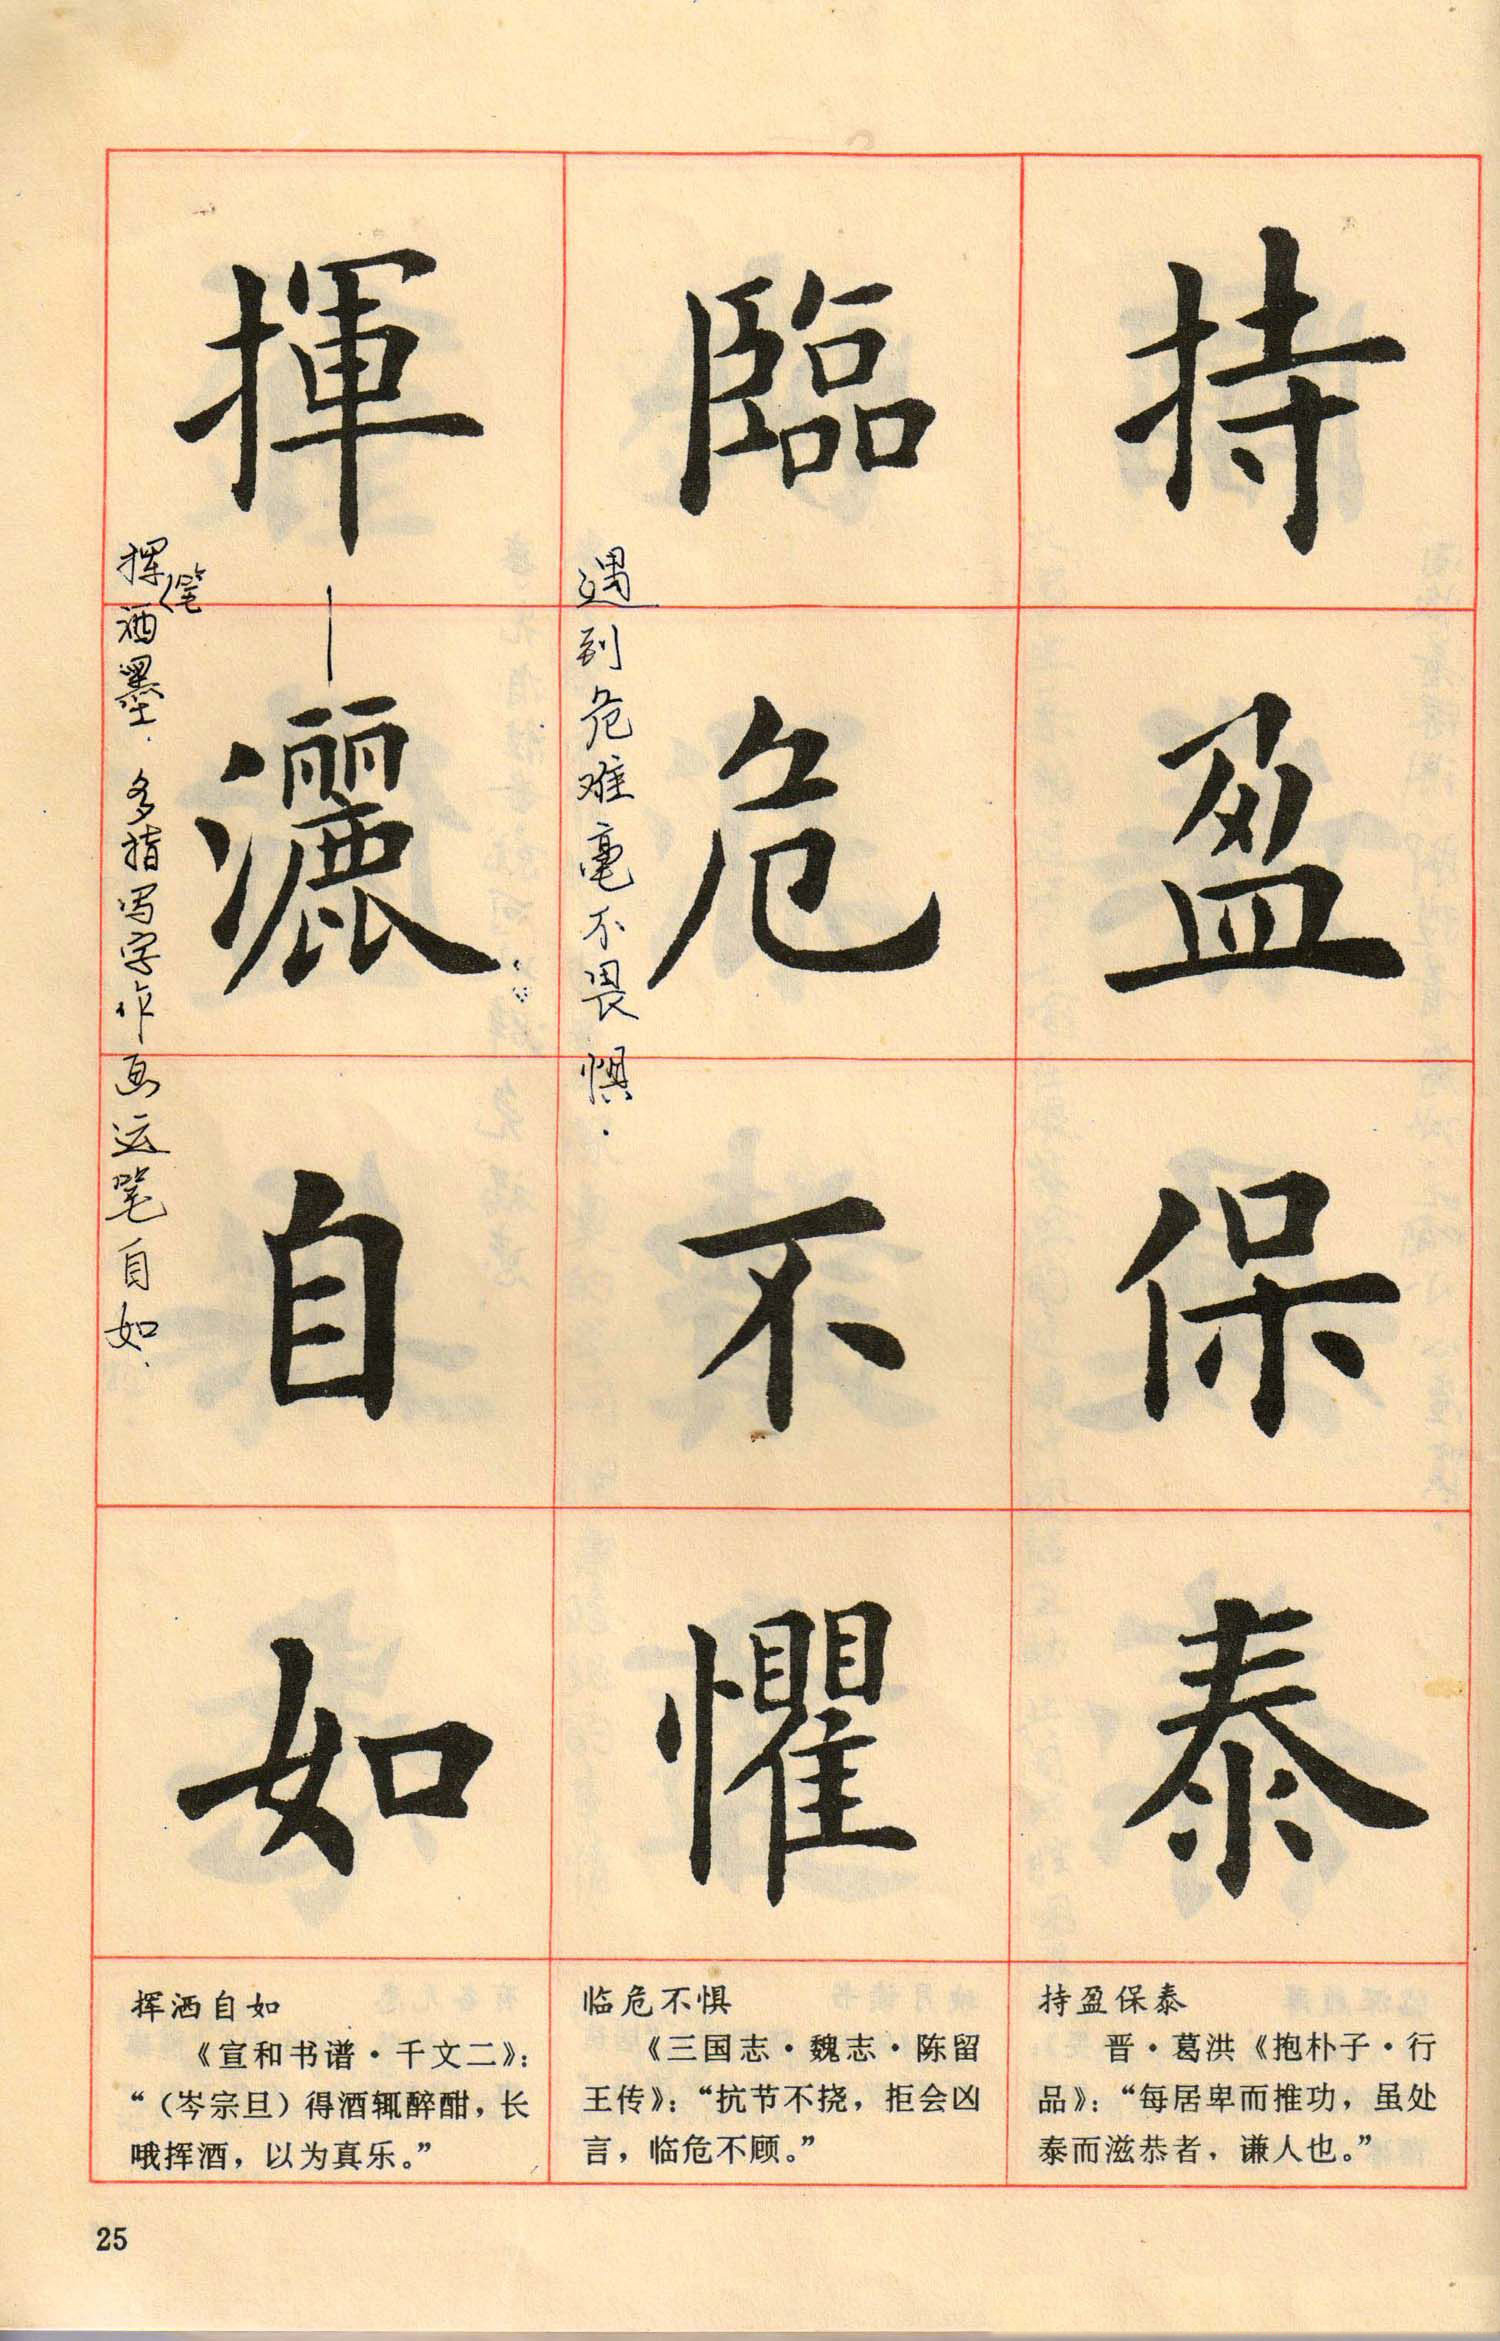 持盈保泰
臨危不懼
遇到危难毫不畏惧.
揮灑自如
挥笔洒墨.多指写字作画运笔自如.
持盈保泰
晋·葛洪《抱朴子·行
品》：“每居卑而推功，虽处
泰而滋恭者，谦人也。”
临危不惧
《三国志·魏志·陈留
王传》：“抗节不挠，拒会凶
言，临危不顾。”
挥洒自如
《宣和书谱·千文二》：
“（岑宗旦）得酒辄醉酣，长
哦挥洒，以为真乐。”
25